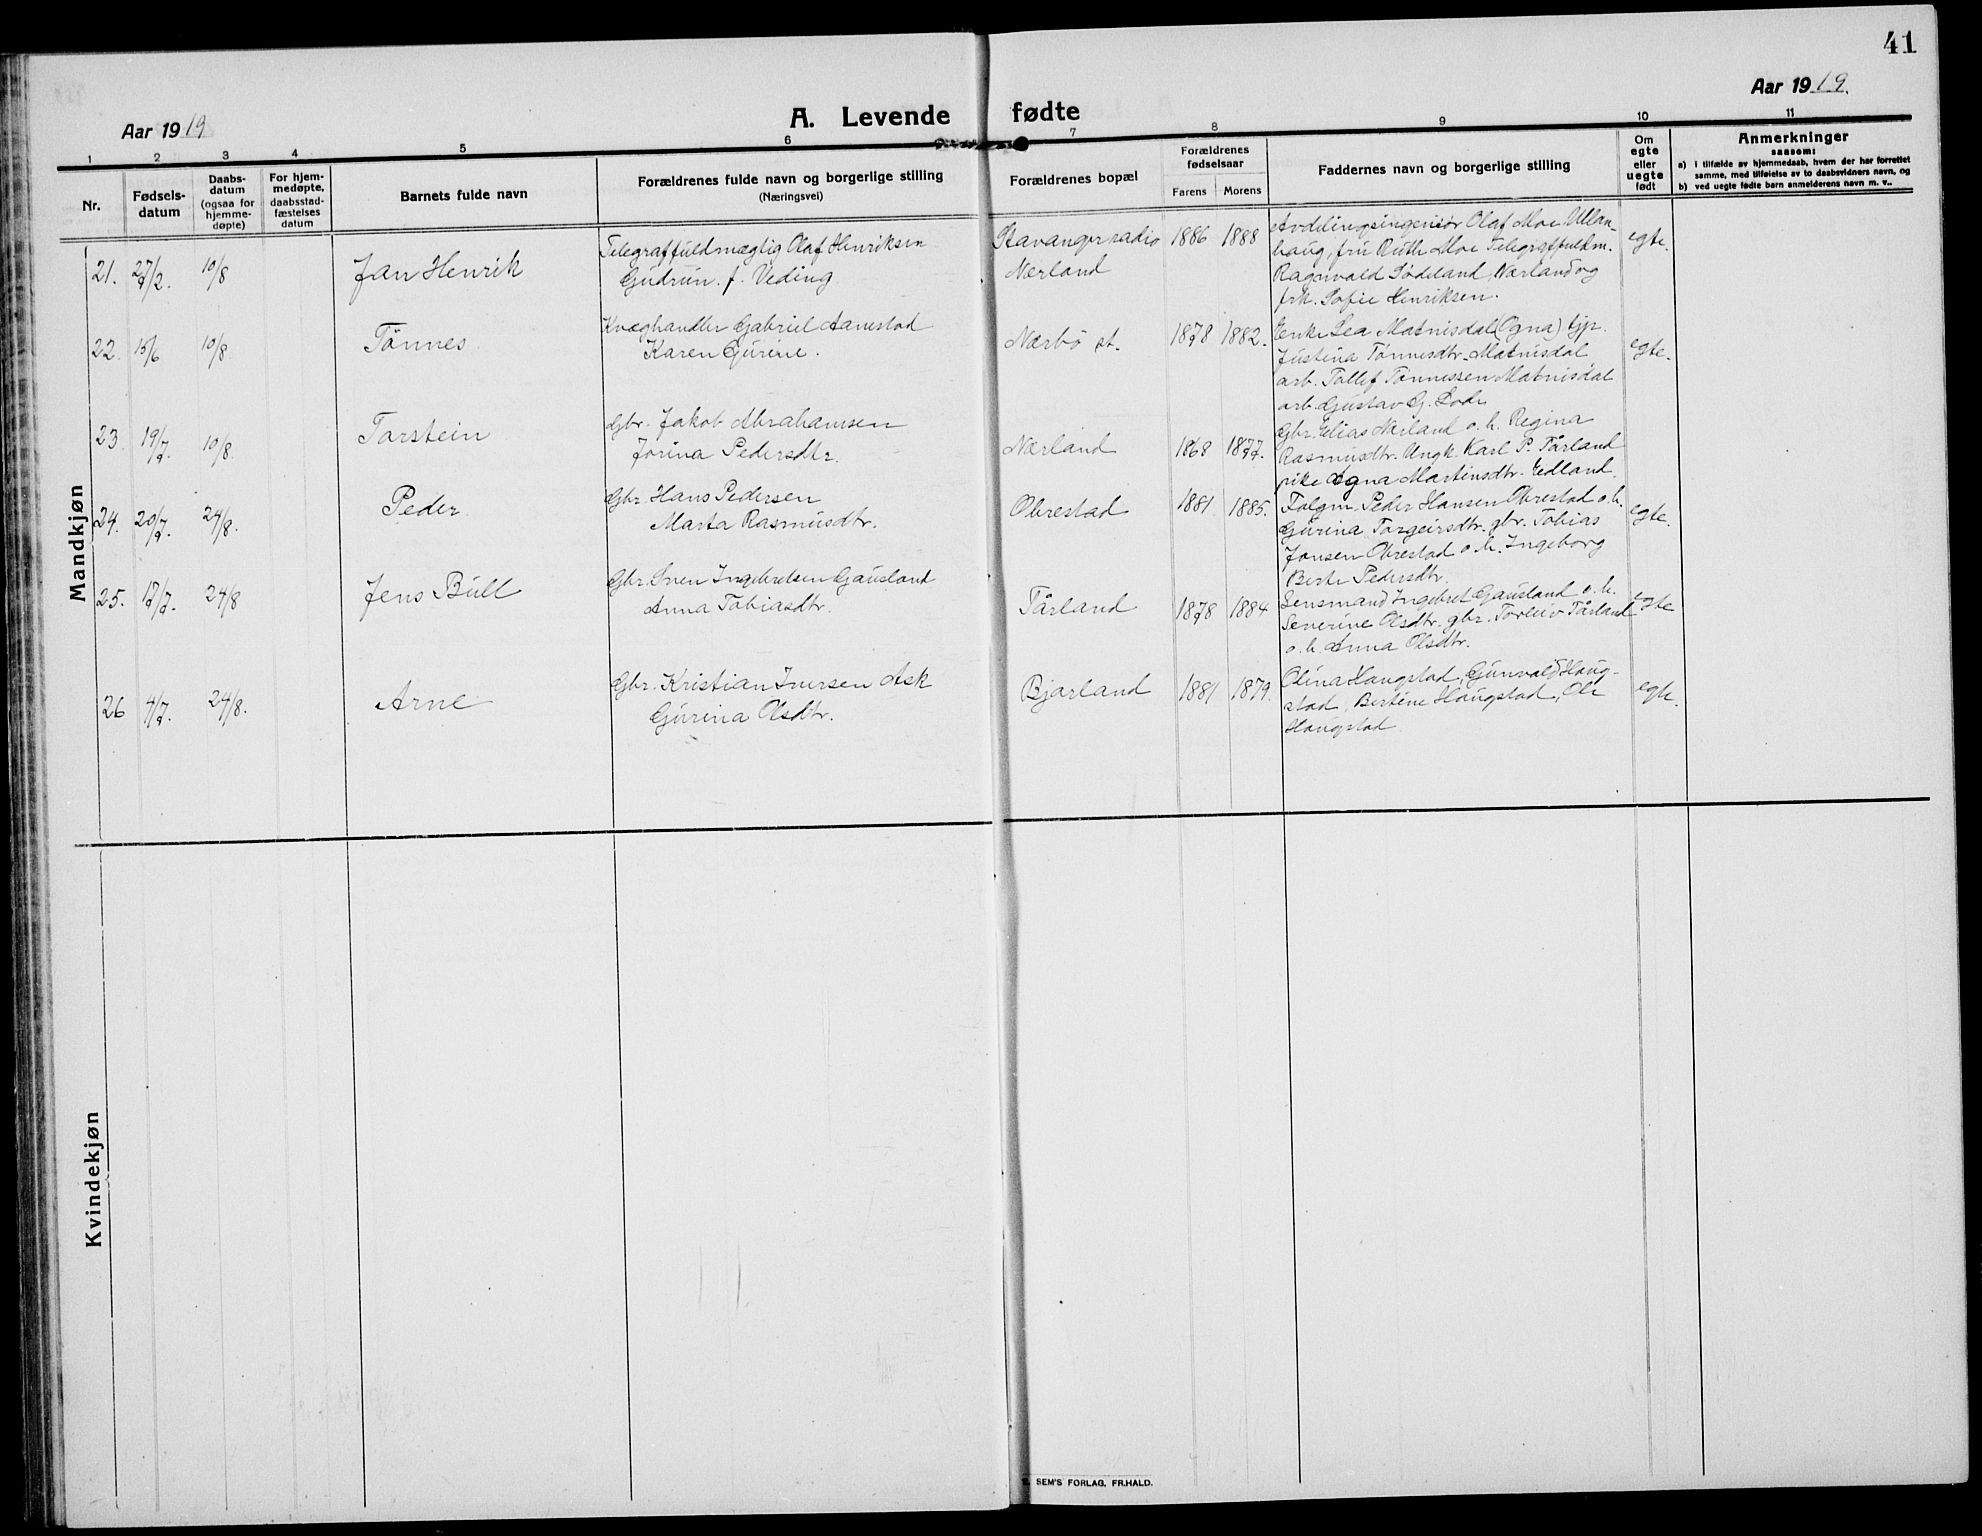 41
Aar 1919
A. Levende fødte
Aar 1919.
1 2 3 4 5 6 7 8 9 10 11
Nr.
Fødsels-
datum
Daabs-
datum
(ogsaa for
hjemme-
døpte)
For hjem-
medøpte,
daabsstad-
fæstelses
datum
Barnets fulde navn
Forældrenes fulde navn og borgerlige stilling
(Næringsvei)
Forældrenes bopæl
Forældrenes
fødselsaar
Farens Morens
Faddernes navn og borgerlige stilling
Om
egte
eller
uegte
født
Anmerkninger
saasom:
a) i tilfælde av hjemmedaab, hvem der har forrettet
samme, med tilføielse av to daabsvidners navn, og
b) ved uegte fødte barn anmelderens navn m. v..
Mandkjøn
21. 27/2. 10/8 Jan Henrik
Telegraffuldmægtig Olaf Henriksen
Gudrun. f. Veding
Stavanger radio
Nærland
1886 1888
Avdelingsingeniör Olaf Moe Ullan-
haug, fru Ruth Moe Telegraffuldm.
Ragnvald Sødeland, Nærland og
frk. Sofie Henriksen.
egte.
22. 15/6 10/8 Tönnes
Kvæghandler Gabriel Aanestad
Karen Gurine.
Nærbö st.
1878 1882.
Enke Lea Matnisdal (Ogna) tjp.
Justina Tønnesdtr. Matnisdal
arb. Tollef Tønnessen Matnisdal
arb. Gustav G. Lode
egte.
23 19/7. 10/8. Torstein
Gbr. Jakob Abrahamsen
Jorina Pedersdtr.
Nærland
1868 1877.
Gbr. Elias Nærland o. h. Regina
Rasmusdtr. Ungk. Karl P. Tårland
pike Agna Martinsdtr. Edland.
24. 20/7. 24/8. Peder
Gbr. Hans Pedersen
Marta Rasmusdtr.
Obrestad
1881. 1885.
Folgm. Peder Hansen Obrestad o. h.
Gurina Torgeirsdtr. gbr. Tobias
Jonsen Obrestad o. h. Ingeborg
Berte Pedersdtr.
egte.
25. 17/7. 24/8 Jens Bull
Gbr. Sven Ingebretsen Gausland
Anna Tobiasdtr.
Tårland
1878 1884
Lensmand Ingebret Gausland o. h.
Severine Olsdtr. gbr. Torleiv Tårland
o. h. Anna Olsdtr.
egte
26 4/7. 24/8. Arne
Gbr. Kristian Iversen Ask
Gurina Olsdtr.
Bjorland
1881 1879.
Olina Haugstad, Gunvald Haug-
stad, Bertine Haugstad, Ole
Haugstad
egte.
Kvindekjøn
SEM'S FORLAG, FR.HALD.